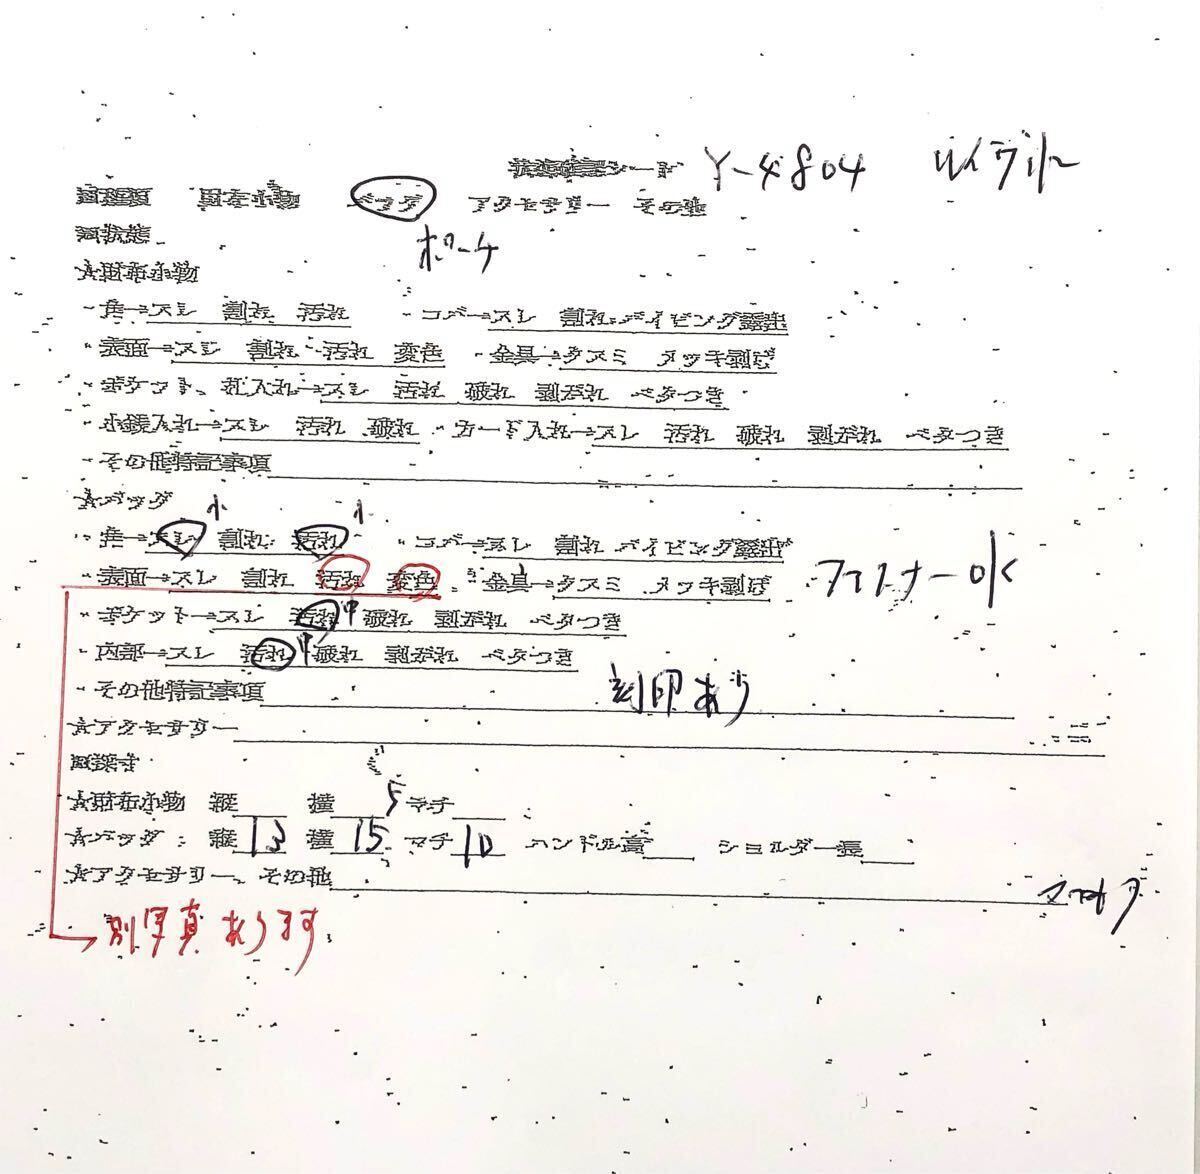 状態確認シート Y-4804 ルイヴィトン
財布小物 バッグ アクセサリー その他
ポーチ
★財布小物
・角→スレ 割れ 汚れ ・コバ→スレ 割れ パイピング露出
・表面→スレ 割れ 汚れ 変色 ・金具→クスミ メッキ剥げ
・ポケット、札入れ→スレ 汚れ 破れ 剥がれ ベタつき
・小銭入れ→スレ 汚れ 破れ ・カード入れ→スレ 汚れ 破れ 剥がれ ベタつき
・その他特記事項
★バッグ
小 小
・角→スレ 割れ 汚れ ・コバ→スレ 割れ パイピング露出
・表面→スレ 割れ 汚れ 変色 ・金具→クスミ メッキ剥げ ファスナーOK
・ポケット→スレ 汚れ 中 破れ 剥がれ ベタつき
・内部→スレ 汚れ 中 破れ 剥がれ ベタつき
・その他特記事項 刻印あり
★アクセサリー
★財布小物 縦 横 マチ
★バッグ:縦 13 横 15.5 マチ 10 ハンドル高 ショルダー長
★アクセサリー、その他
別写真あります